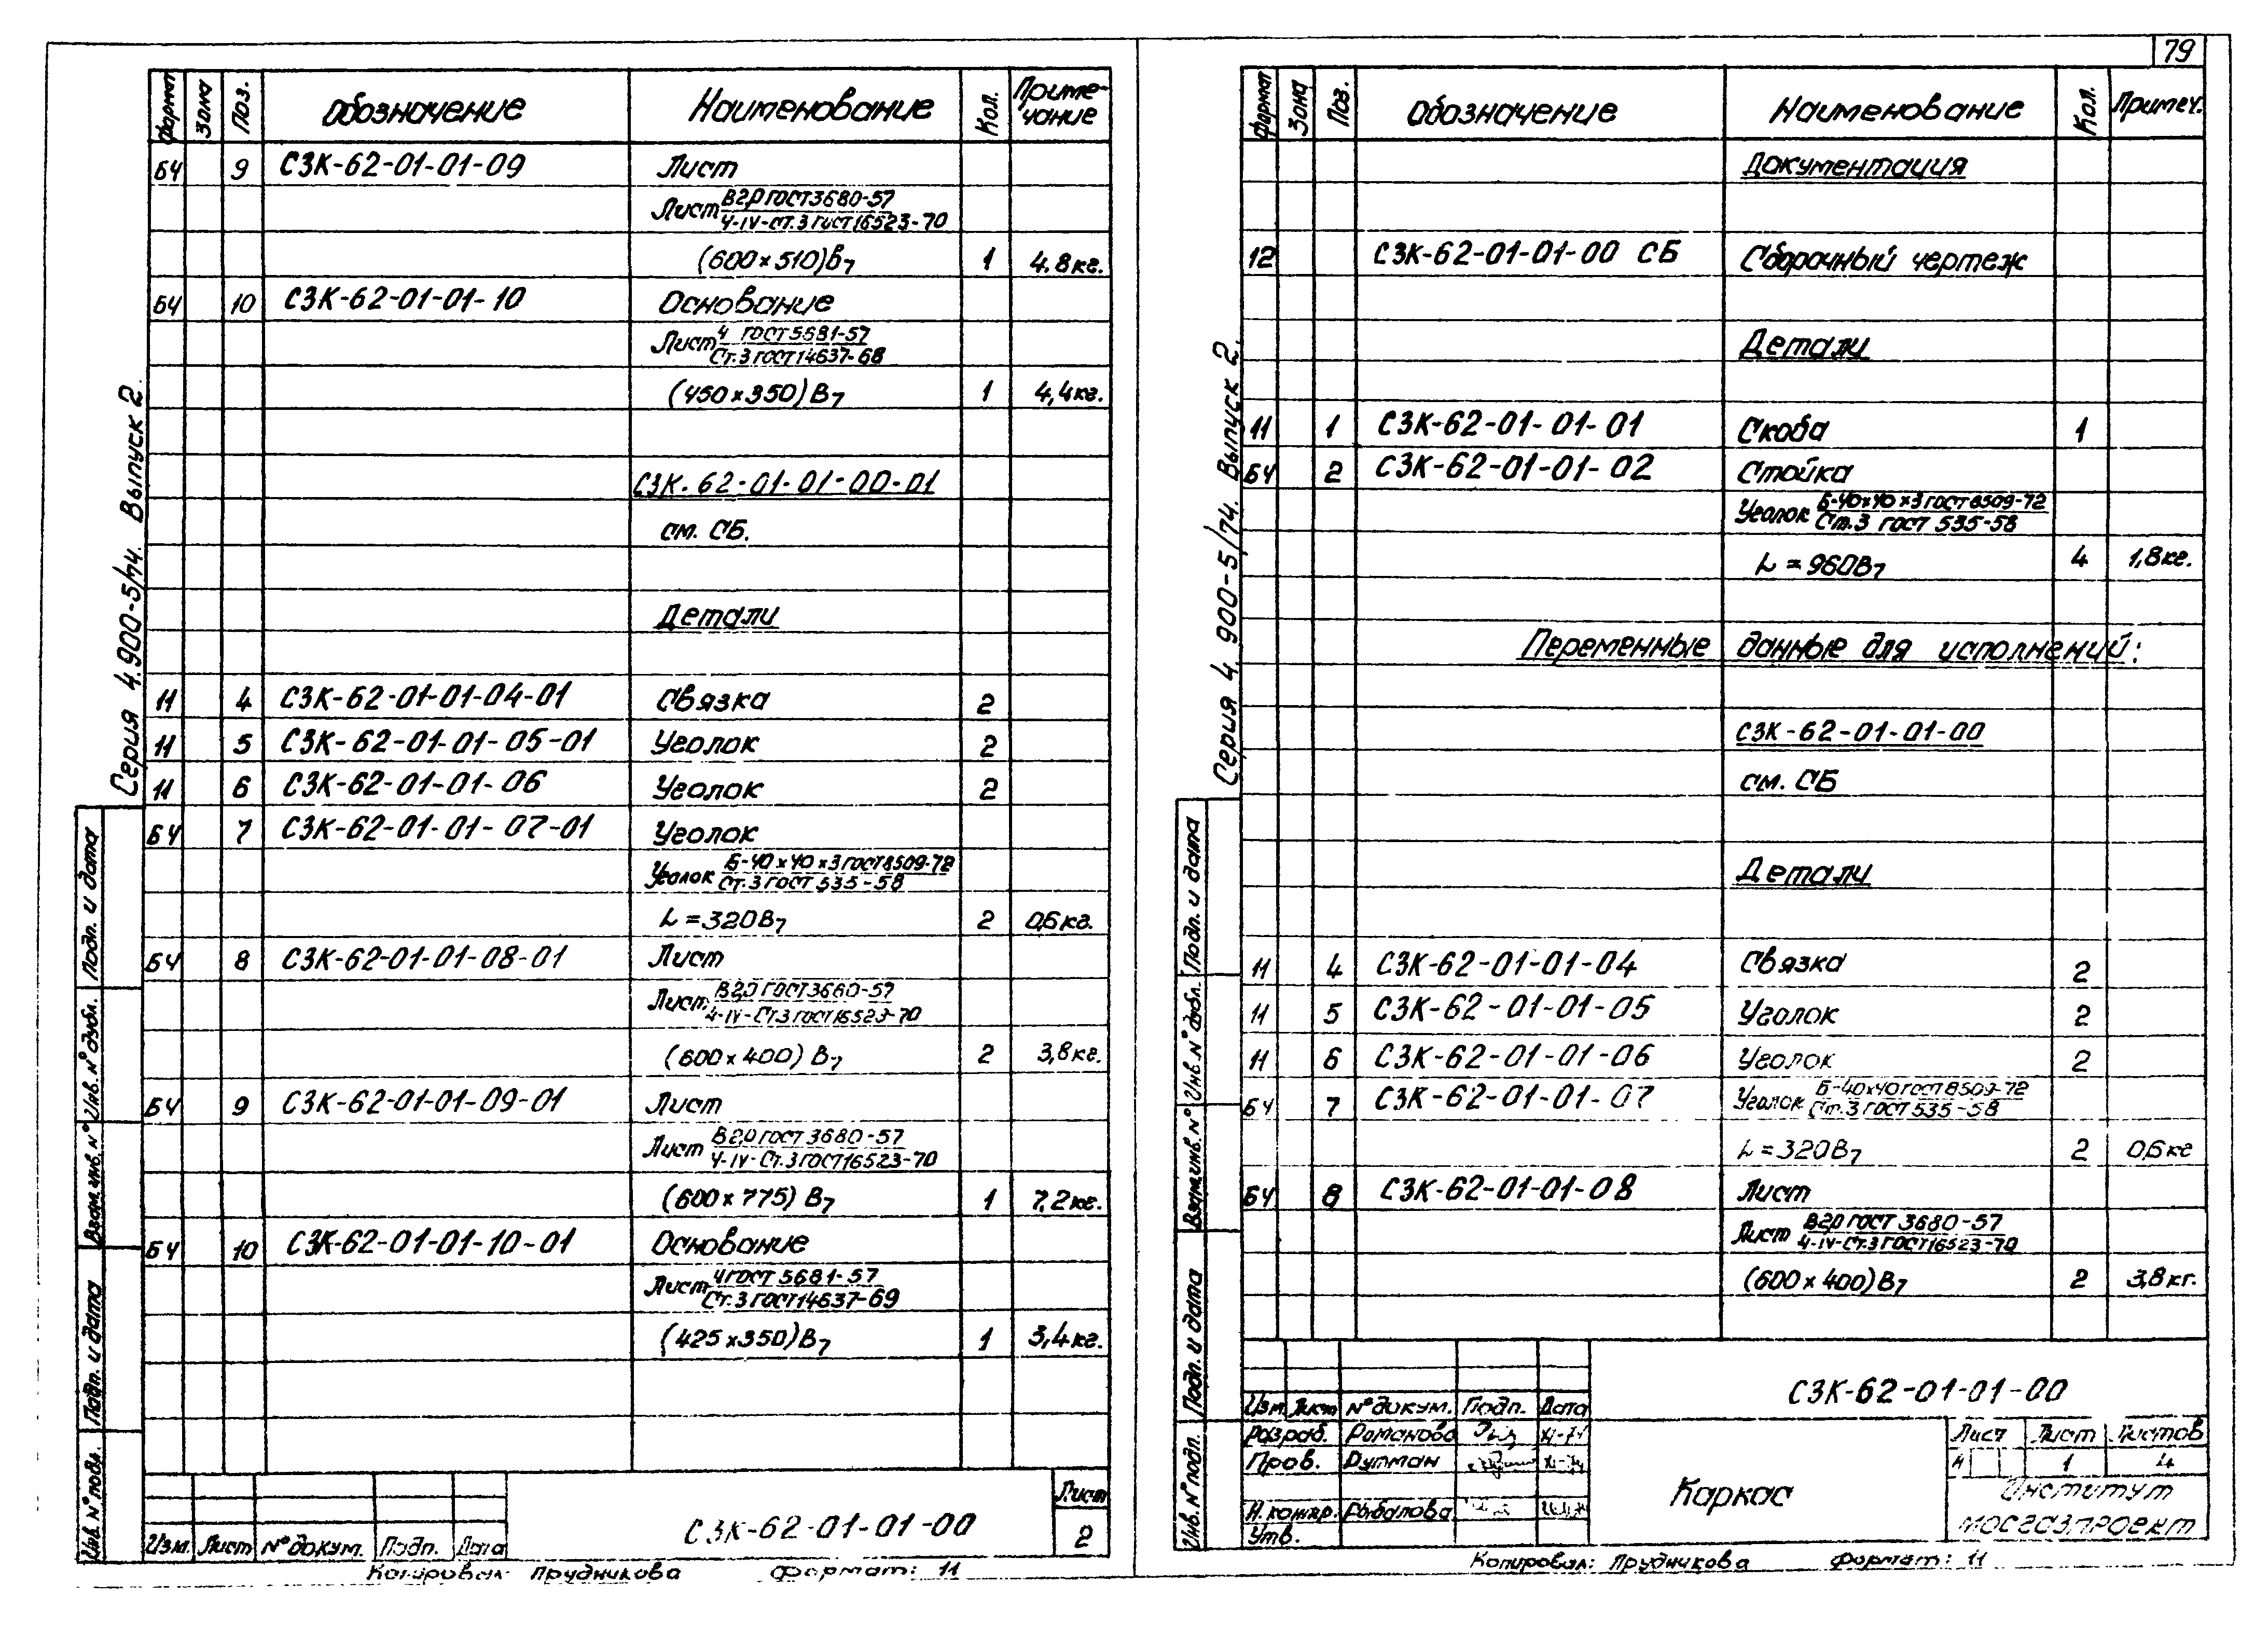 79
Серия 4.900-5/74. Выпуск 2.
Формат Зона Поз. Обозначение Наименование Кол. Приме-чание
БЧ 9 СЗК-62-01-01-09 Лист
Лист В2,0 ГОСТ 3680-57
4-IV-Ст.3 ГОСТ 16523-70
(600×510)В7 1 4,8кг.
БЧ 10 СЗК-62-01-01-10 Основание
Лист 4 ГОСТ 5681-57
Ст.3 ГОСТ 14637-68
(450×350)В7 1 4,4кг.
СЗК-62-01-01-00-01
см. СБ.
Детали
11 4 СЗК-62-01-01-04-01 Связка 2
11 5 СЗК-62-01-01-05-01 Уголок 2
11 6 СЗК-62-01-01-06 Уголок 2
БЧ 7 СЗК-62-01-01-07-01 Уголок
Уголок Б-40×40×3 ГОСТ 8509-72
Ст.3 ГОСТ 535-58
L=320В7 2 0,6кг.
БЧ 8 СЗК-62-01-01-08-01 Лист
Лист В2,0 ГОСТ 3680-57
4-IV-Ст.3 ГОСТ 16523-70
(600×400) В7 2 3,8кг.
БЧ 9 СЗК-62-01-01-09-01 Лист
Лист В2,0 ГОСТ 3680-57
4-IV-Ст.3 ГОСТ 16523-70
(600×775) В7 1 7,2кг.
БЧ 10 СЗК-62-01-01-10-01 Основание
Лист 4 ГОСТ 5681-57
Ст.3 ГОСТ 14637-69
(425×350)В7 1 3,4кг.
Подп. и дата
Инв. № дубл.
Взам. инв. №
Подп. и дата
Инв. № подл.
Изм. Лист № докум. Подп. Дата
СЗК-62-01-01-00
Лист
2
Копировал: Прудникова Формат: 11
Серия 4.900-5/74. Выпуск 2.
Формат Зона Поз. Обозначение Наименование Кол. Примеч.
Документация
12 СЗК-62-01-01-00 СБ Сборочный чертеж
Детали
11 1 СЗК-62-01-01-01 Скоба 1
БЧ 2 СЗК-62-01-01-02 Стойка
Уголок Б-40×40×3 ГОСТ 8509-72
Ст.3 ГОСТ 535-58
L=960В7 4 1,8кг.
Переменные данные для исполнений:
СЗК-62-01-01-00
см. СБ
Детали
11 4 СЗК-62-01-01-04 Связка 2
11 5 СЗК-62-01-01-05 Уголок 2
11 6 СЗК-62-01-01-06 Уголок 2
БЧ 7 СЗК-62-01-01-07 Уголок Б-40×40 ГОСТ 8509-72
Ст.3 ГОСТ 535-58
L=320В7 2 0,6кг
БЧ 8 СЗК-62-01-01-08 Лист
Лист В2,0 ГОСТ 3680-57
4-IV-Ст.3 ГОСТ 16523-70
(600×400)В7 2 3,8кг.
Подп. и дата
Инв. № дубл.
Взам. инв. №
Подп. и дата
Инв. № подл.
СЗК-62-01-01-00
Изм. Лист № докум. Подп. Дата
Разраб. Романова XI-74
Пров. Дупман XI-74
Н. контр. Рыбалова
Утв.
Каркас
Лист Лист Листов
И 1 4
Институт
МОСГАЗПРОЕКТ
Копировал: Прудникова Формат: 11